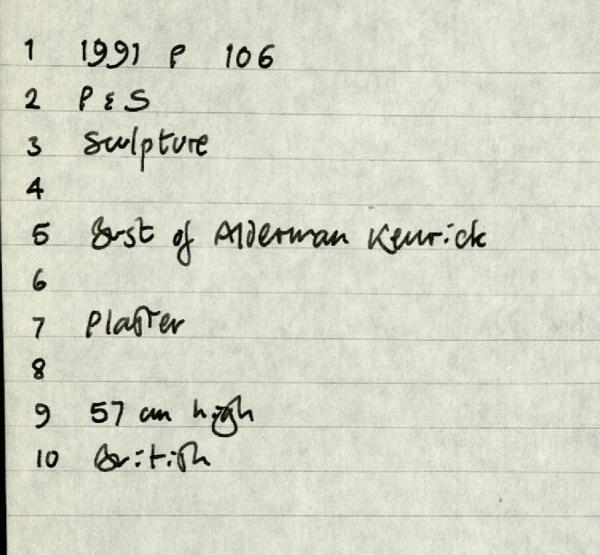 1 1991 P 106
2 P & S
3 Sculpture
4
5 Bust of Alderman Kenrick
6
7 Plaster
8
9 57 cm high
10 British